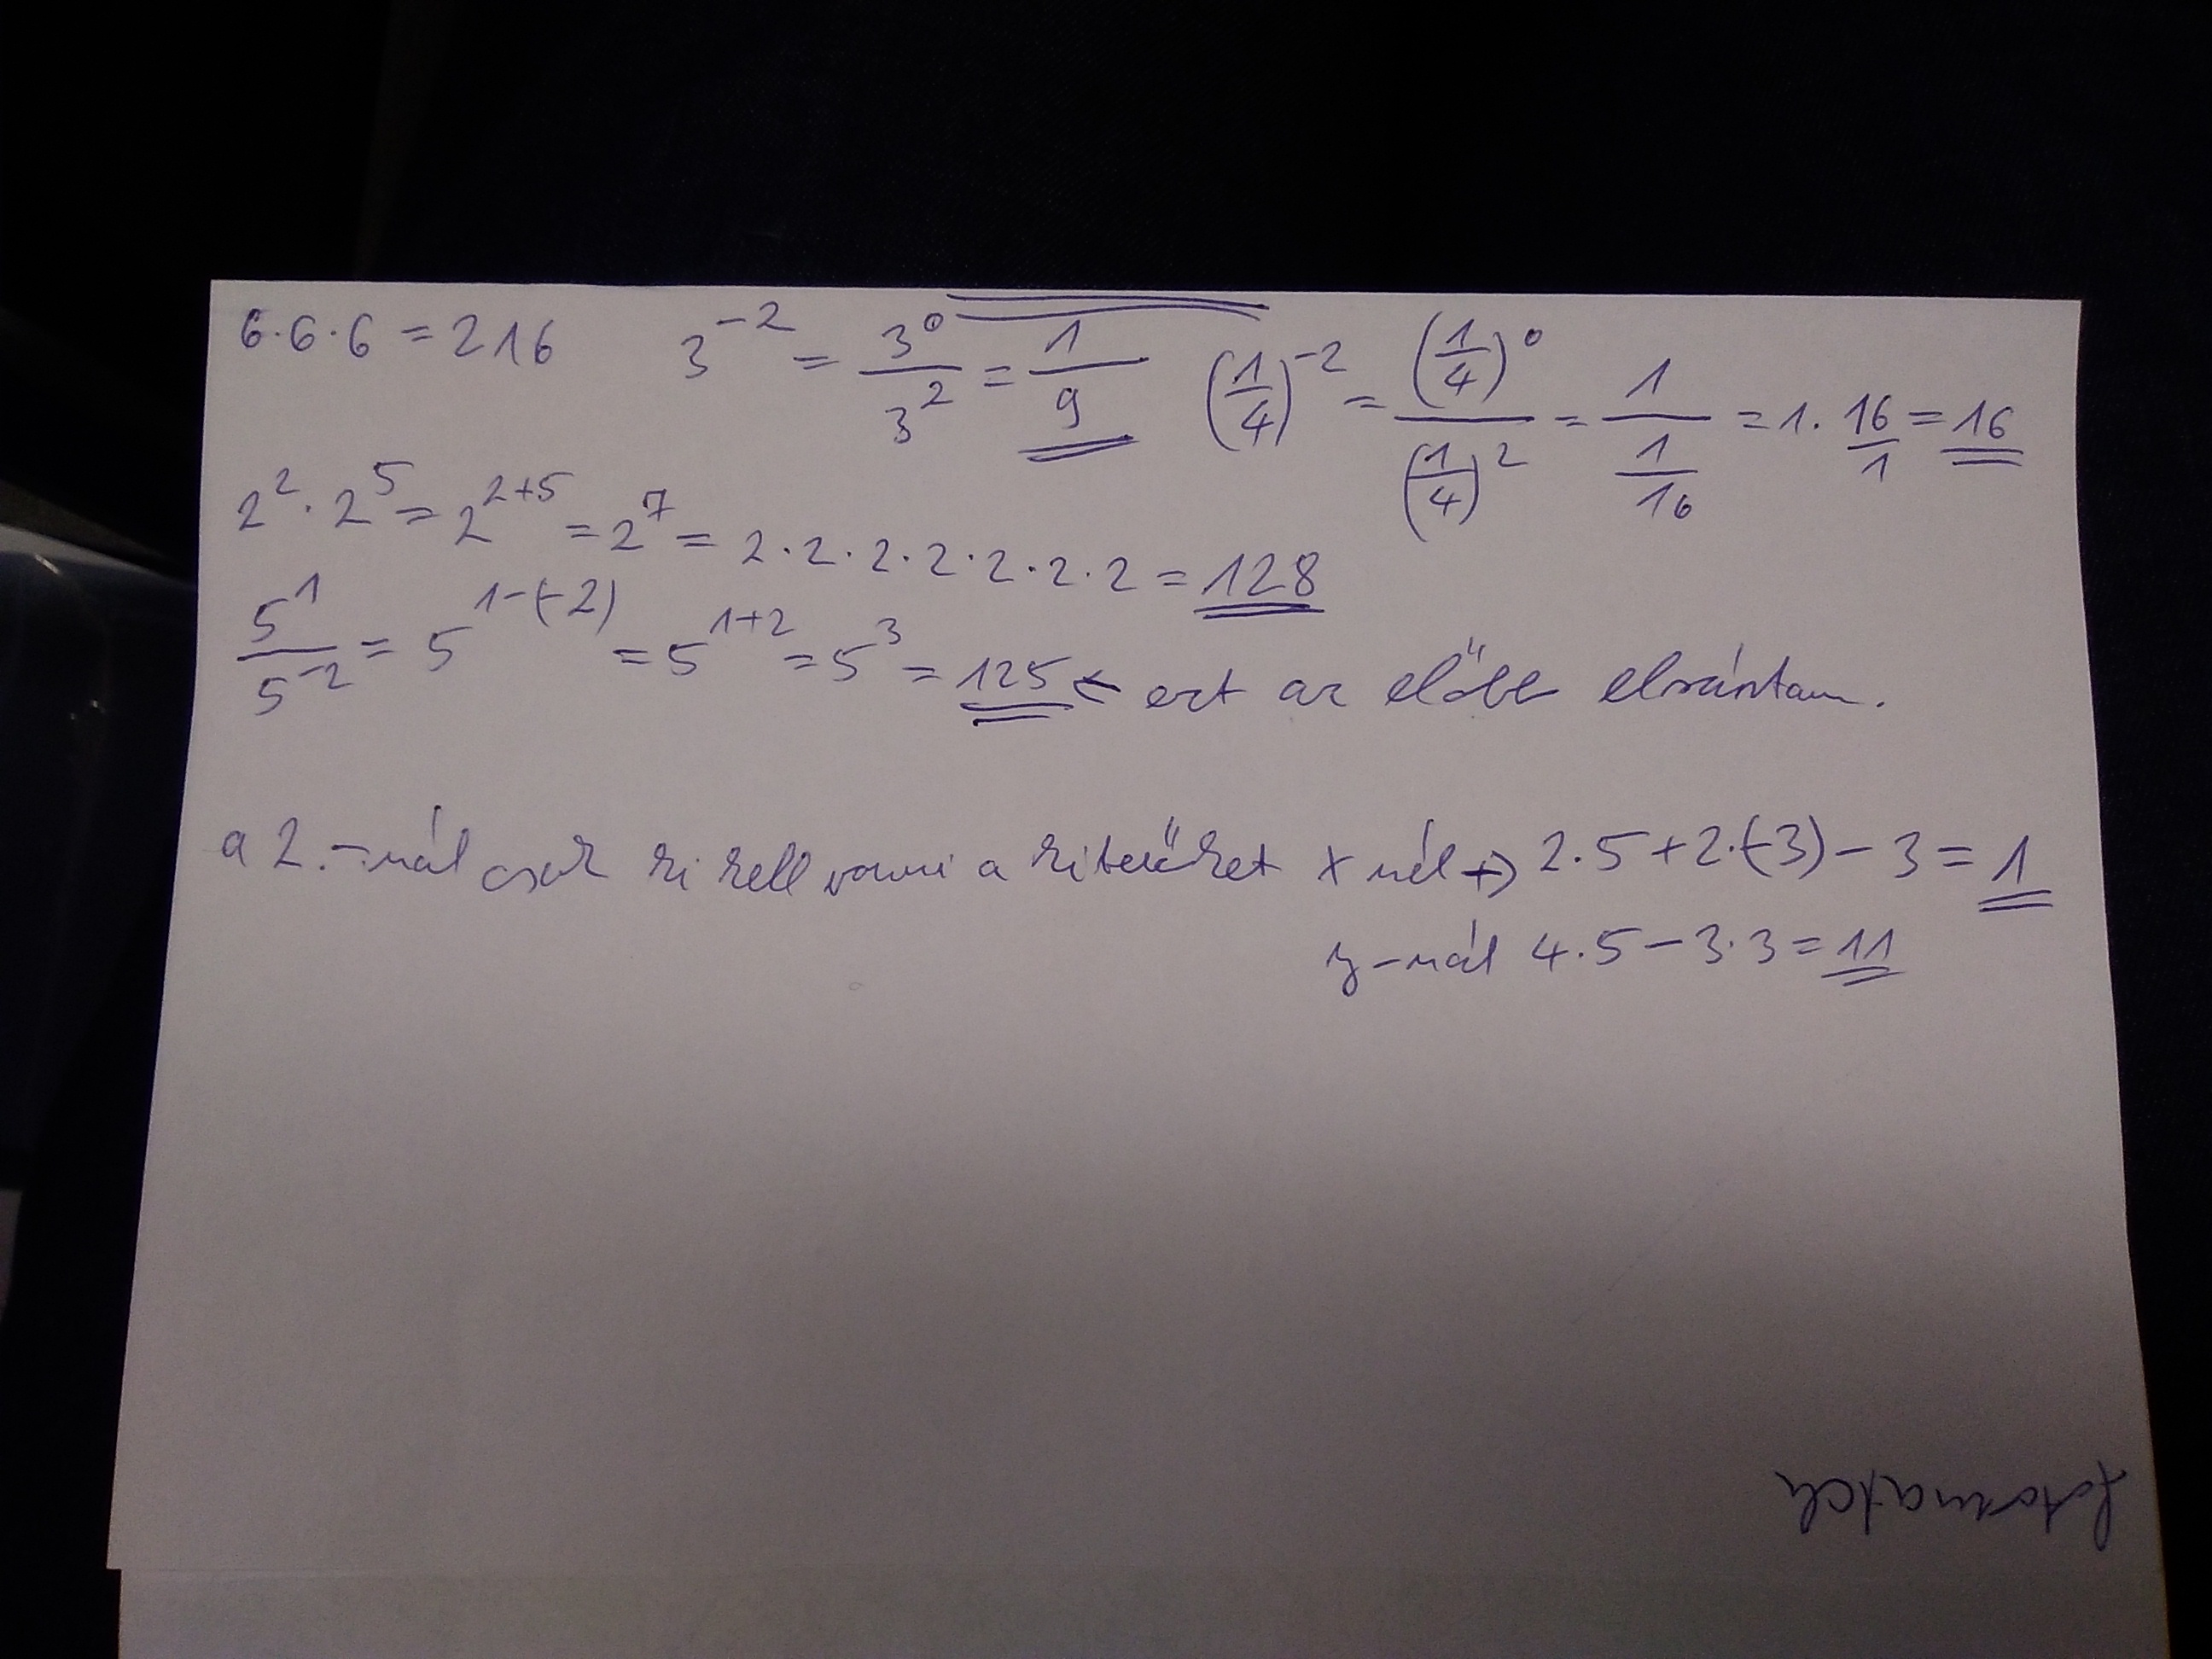 6·6·6 = 216 3^-2 = 3^0/3^2 = 1/9 (1/4)^-2 = (1/4)^0/(1/4)^2 = 1/(1/16) = 1·16/1 = 16
2^2·2^5 = 2^(2+5) = 2^7 = 2·2·2·2·2·2·2 = 128
5^1/5^-2 = 5^(1-(-2)) = 5^(1+2) = 5^3 = 125 ← ezt az előbb elrántam.
a 2.-nál csak ki kell vonni a kitevőket x nél → 2·5+2·(-3)-3 = 1
y-nál 4·5-3·3 = 11